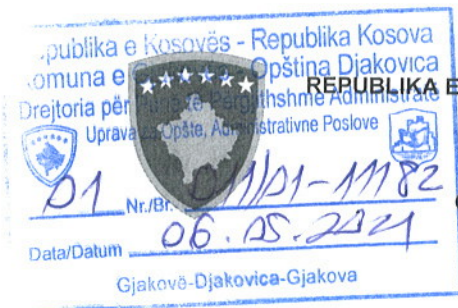 publika e Kosovës - Republika Kosova
omuna e Opština Djakovica
REPUBLIKA E
Drejtoria për Punë të Përgjithshme Administrate
Uprava za Opšte, Administrativne Poslove
01 Nr./Br. 011/01-11182
Data/Datum 06.05.2021
Gjakovë-Djakovica-Gjakova